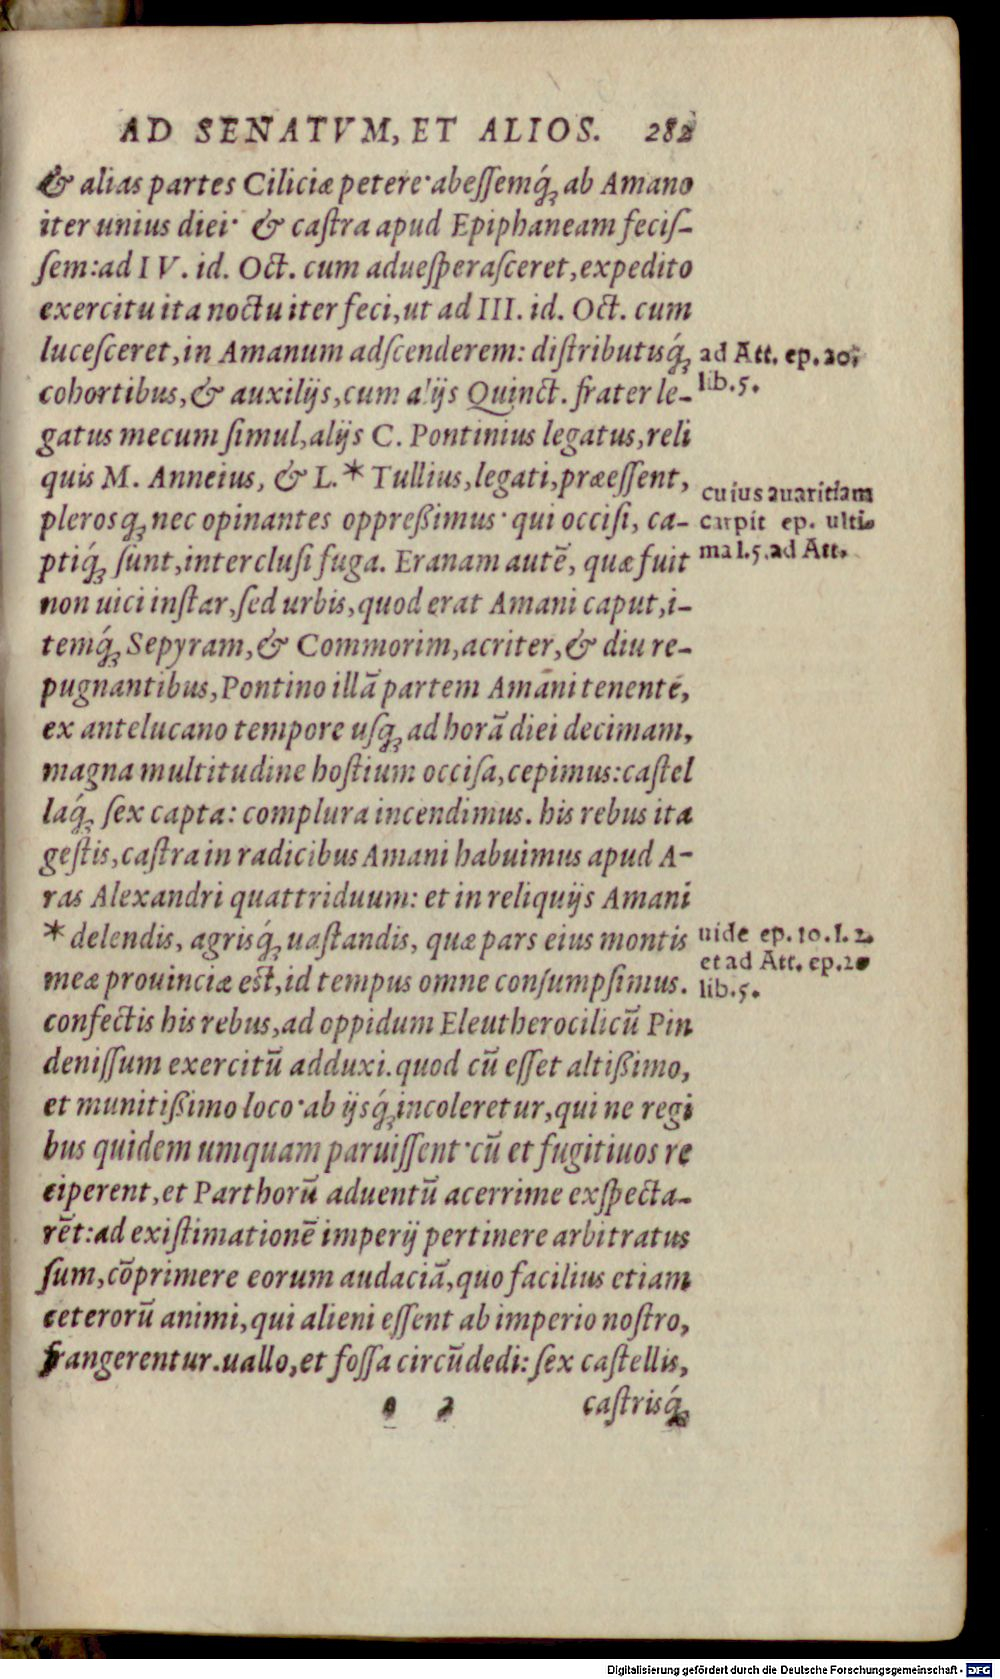 AD SENATVM, ET ALIOS. 282
& alias partes Ciliciæ petere· abeſſemq́; ab Amano
iter unius diei· & caſtra apud Epiphaneam feciſ-
ſem: ad IV. id. Oct. cum adueſperaſceret, expedito
exercitu ita noctu iter feci, ut ad III. id. Oct. cum
luceſceret, in Amanum adſcenderem: diſtributisq́;
cohortibus, & auxilijs, cum alijs Quinct. frater le-
gatus mecum ſimul, alijs C. Pontinius legatus, reli
quis M. Anneius, & L. * Tullius, legati, præeſſent,
plerosq; nec opinantes oppreßimus· qui occiſi, ca-
ptiq́; ſunt, interclusi fuga. Eranam autē, quæ fuit
non uici inſtar, ſed urbis, quod erat Amani caput, i-
temq́; Sepyram, & Commorim, acriter, & diu re-
pugnantibus, Pontino illā partem Amani tenente,
ex antelucano tempore uſq; ad horā diei decimam,
magna multitudine hoſtium occiſa, cepimus: caſtel
laq́; ſex capta: complura incendimus. his rebus ita
geſtis, caſtra in radicibus Amani habuimus apud A-
ras Alexandri quattriduum: et in reliquijs Amani
* delendis, agrisq́; uaſtandis, quæ pars eius montis
meæ prouinciæ est, id tempus omne conſumpſimus.
confectis his rebus, ad oppidum Eleutherocilicū Pin
deniſſum exercitū adduxi. quod cū eſſet altißimo,
et munitißimo loco· ab ijsq́; incoleretur, qui ne regi
bus quidem umquam paruiſſent· cū et fugitiuos re
ciperent, et Parthorū aduentū acerrime exſpecta-
rēt: ad exiſtimationē imperij pertinere arbitratus
ſum, cōprimere eorum audaciā, quo facilius etiam
ceterorū animi, qui alieni eſſent ab imperio noſtro,
frangerentur. uallo, et foſſa circūdedi: ſex caſtellis,
o 2 caſtrisq́;
ad Att. ep. 20.
lib. 5.
cuius auaritiam
carpit ep. ulti-
ma l. 5. ad Att.
uide ep. 10. l. 2.
et ad Att. ep. 20
lib. 5.
Digitalisierung gefördert durch die Deutsche Forschungsgemeinschaft - DFG